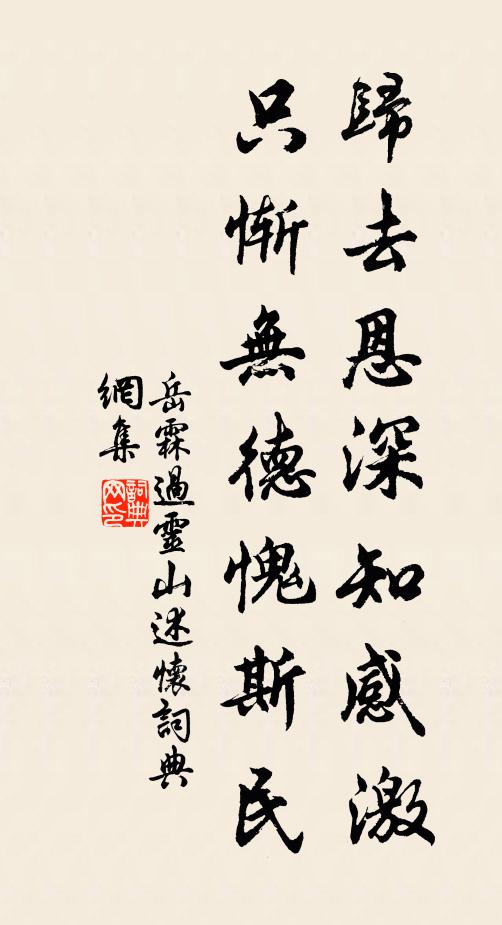 歸去恩深知感激
只慚無德愧斯民
岳霖過靈山述懷詞典
網集
詞典網印